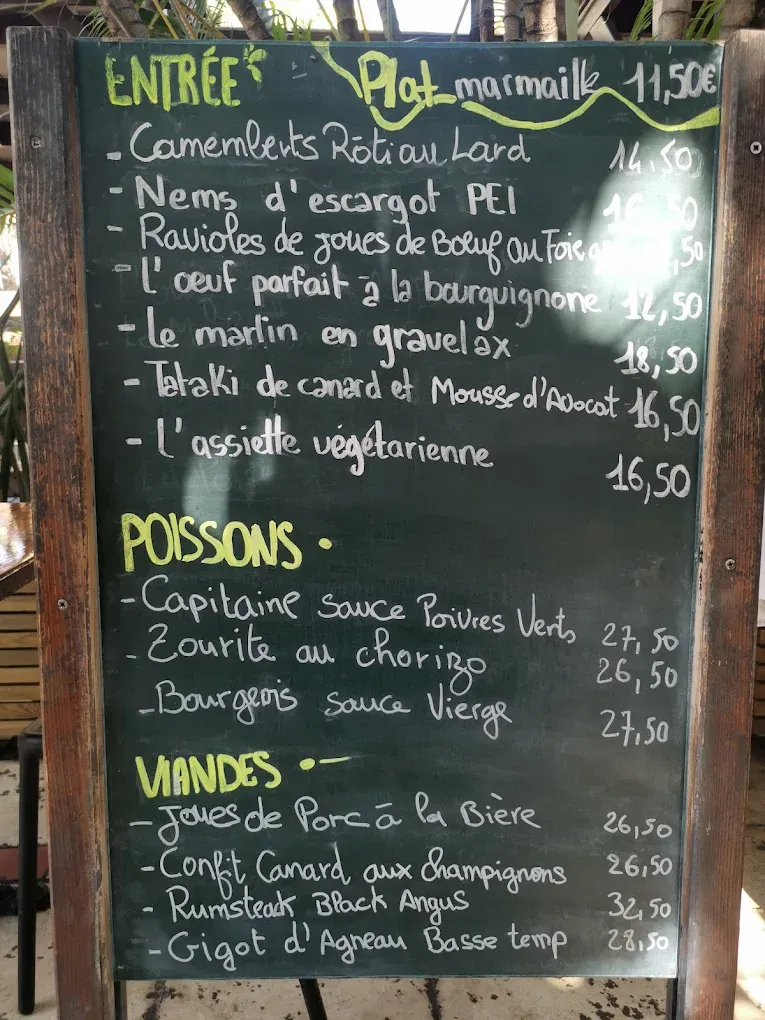 ENTRÉE
Plat marmaille 11,50€
- Camemberts Rôti au Lard 14,50
- Nems d'escargot PEI 16,50
- Ravioles de joues de Bœuf au Foie ,50
- L'œuf parfait à la bourguignone 12,50
- Le marlin en gravelax 18,50
- Tataki de canard et Mousse d'Avocat 16,50
- L'assiette végétarienne 16,50
POISSONS •
- Capitaine sauce Poivres Verts 27,50
- Zourite au chorizo 26,50
- Bourgeois sauce Vierge 27,50
VIANDES •-
- Joues de Porc à la Bière 26,50
- Confit Canard aux champignons 26,50
- Rumsteack Black Angus 32,50
- Gigot d'Agneau Basse temp 28,50